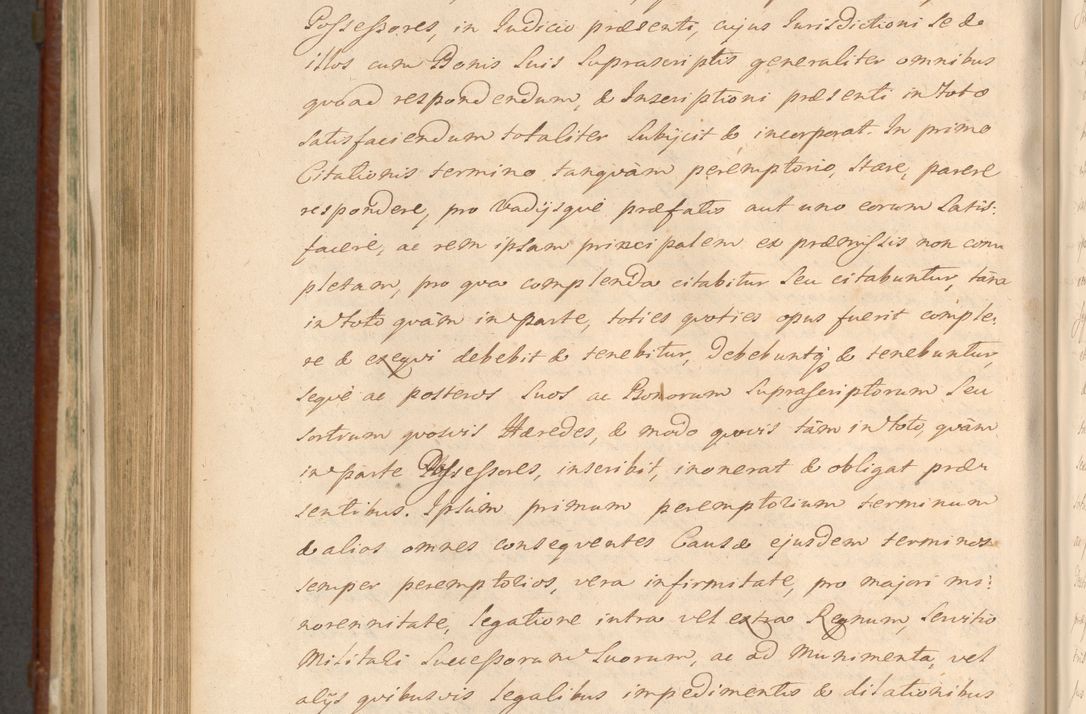 Possessores, in Judicio præsenti, cujus Jurisdictioni se &
illos cum Bonis suis suprascriptis generaliter omnibus
quoad respondendum, & Inscriptioni præsenti in toto
satisfaciendum totaliter subijcit & incorporat. In primo
Citationis termino tanquàm peremptorio, stare, parere
respondere, pro vadijsquè præfatis aut uno eorum satis:
facere, ac rem ipsam principalem ex præmissis non com
pletam, pro qua complenda citabitur seu citabuntur, tàm
in toto quàm in parte, toties quoties opus fuerit comple:
re & exequi debebit & tenebitur, debebuntq; & tenebuntur,
sequè ac posteros suos ac Bonorum suprascriptorum seu
sortium quosvis Hæredes, & modo quovis tàm in toto, quàm
in parte Possessores, inscribit, inonerat & obligat præ
sentibus. Ipsum primum peremptorium terminum
& alios omnes consequentes Causæ ejusdem terminos
semper peremptorios, vera infirmitate, pro majori mi:
norennitate, legatione intra vel extra Regnum, servitio
Militari Successorum suorum, ac ad Munimenta, vel
alijs quibusvis legalibus impedimentis & dilationibus